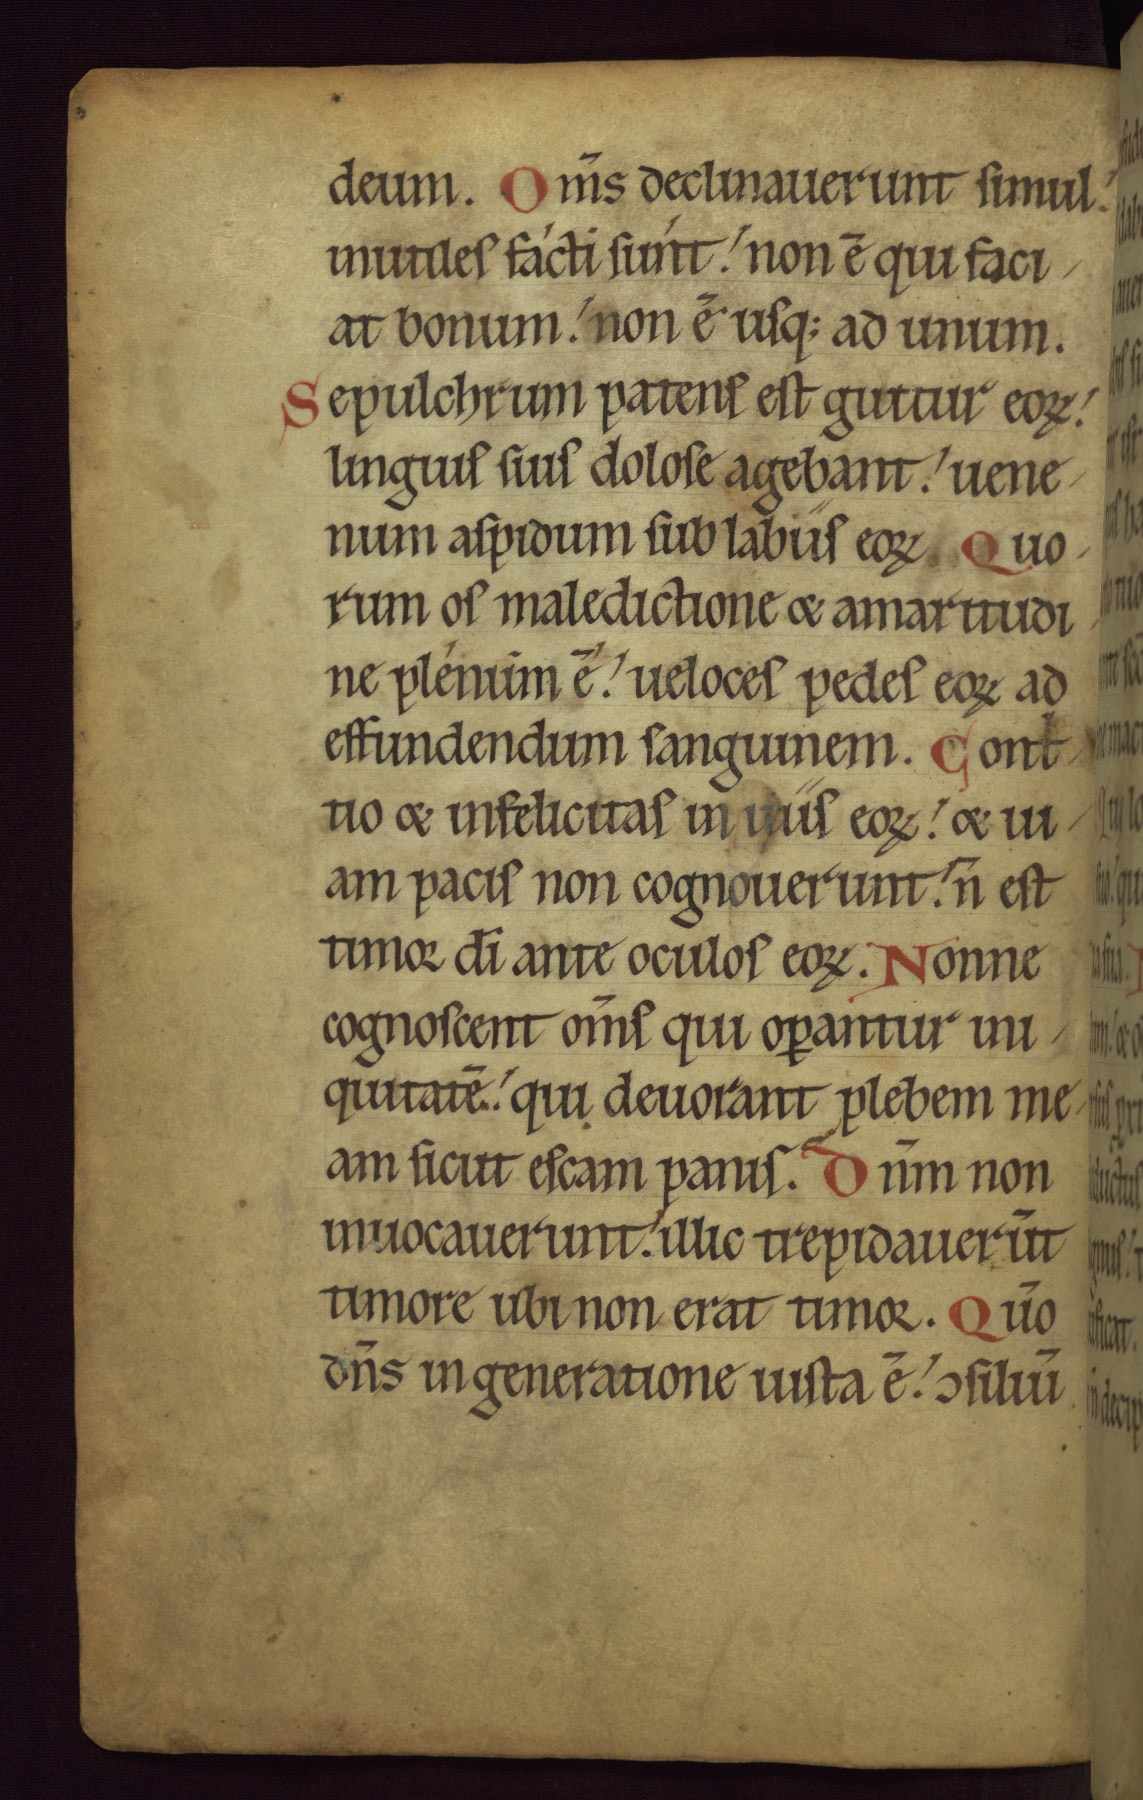 deum. Om̅s declinauerunt simul.
inutiles facti sunt. non ē qui faci
at bonum. non ē usq; ad unum.
Sepulchrum patens est guttur eoꝝ.
linguis suis dolose agebant. uene
num aspidum sub labiis eoꝝ. Quo
rum os maledictione & amaritudi
ne plenum ē. ueloces pedes eoꝝ ad
effundendum sanguinem. Cont
tio & infelicitas in uiis eoꝝ. & ui
am pacis non cognouerunt. n̄ est
timor di̅ ante oculos eoꝝ. Nonne
cognoscent om̅s qui oꝑantur ini
quitatē. qui deuorant plebem me
am sicut escam panis. Dn̅m non
inuocauerunt. illic trepidauerūt
timore ubi non erat timor. Quō
dn̅s in generatione iusta ē. ↄsiliū